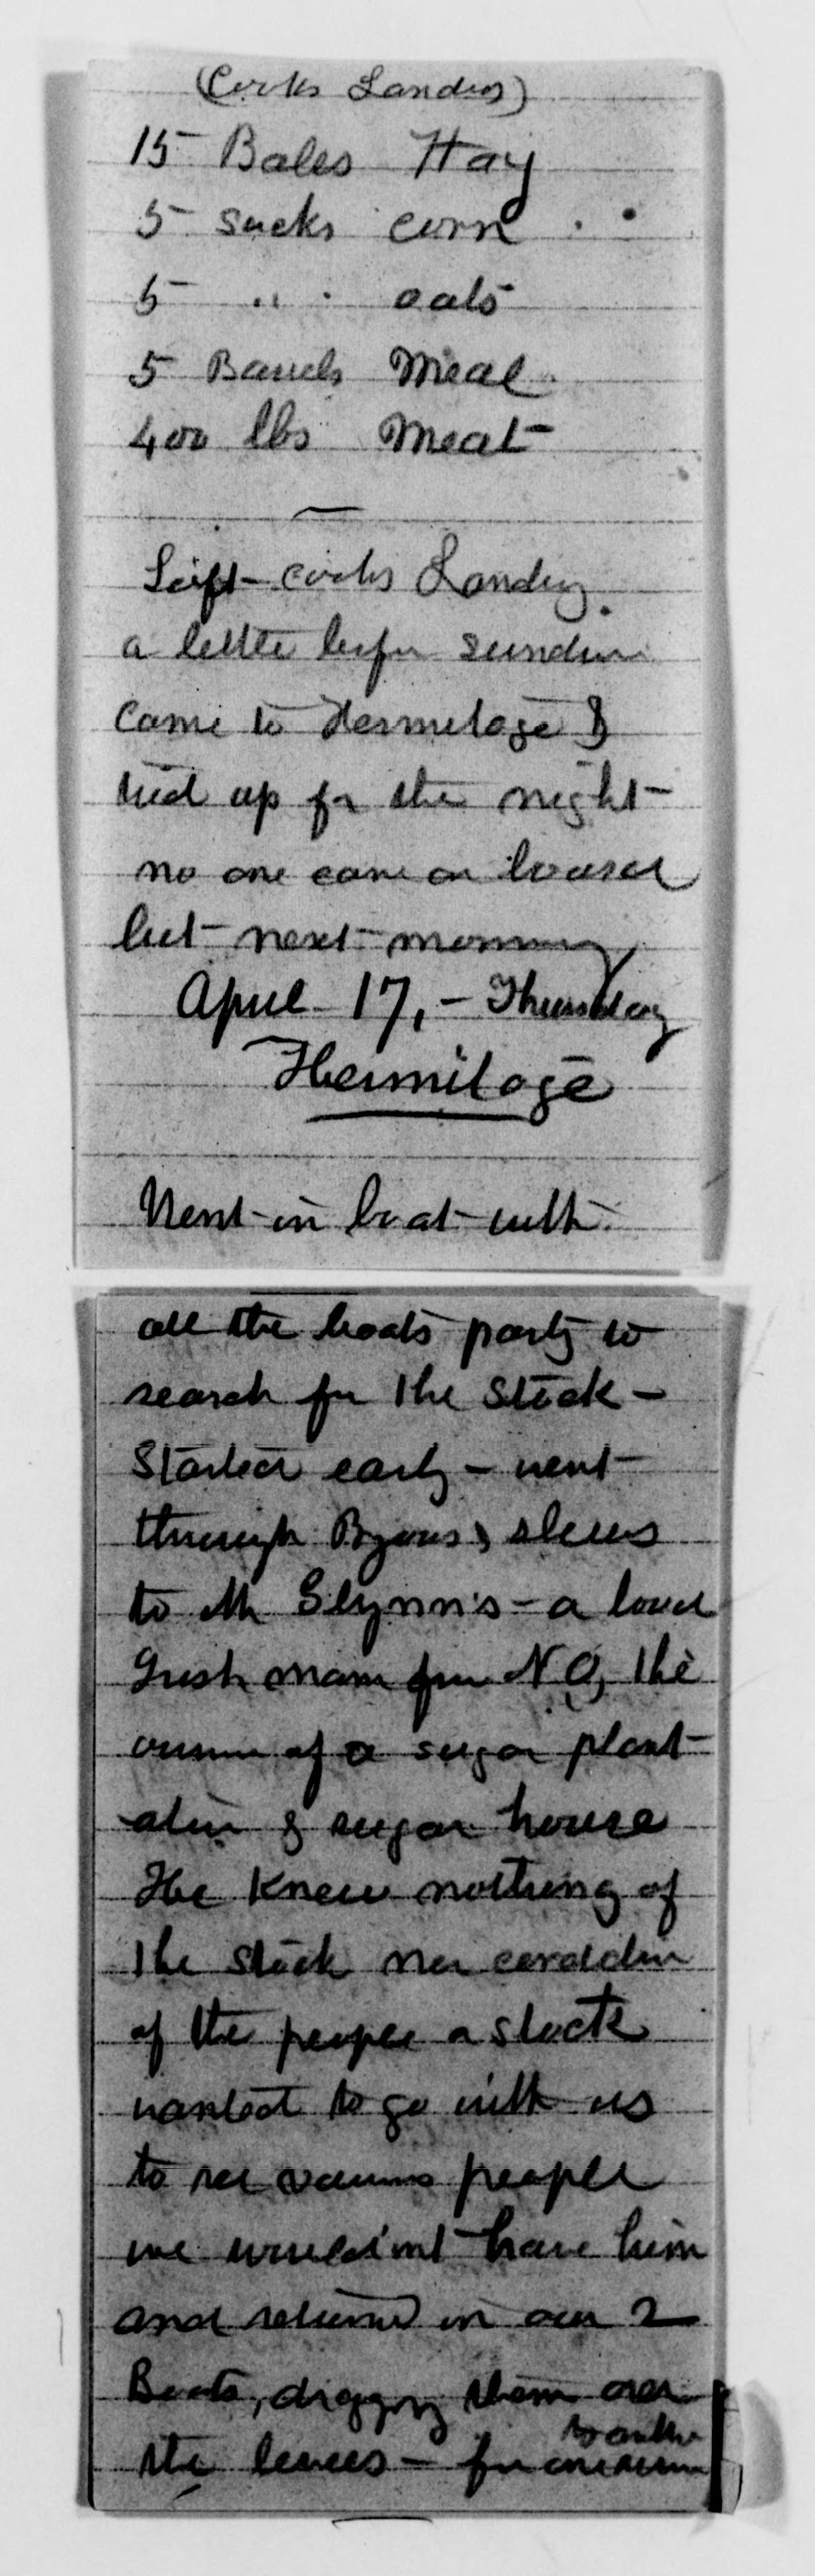 (Cooks Landing)
15 Bales Hay
5 sacks corn
5 " " oats
5 Barrels Meal
400 lbs Meat
Left Cooks Landing
a little before sundown
came to Hermitage &
tied up for the night
no one came on board
but next morning
April 17, - Thursday
Hermitage
Went in boat with
all the boats party to
search for the Stock -
Started early - went
through Bayous & slews
to Mr Glynn's - a loud
Irish man from N O, the
owner of a sugar plant-
ation & sugar house
He knew nothing of
the stock nor condition
of the people
wanted to go with us
to see various people
we wouldnt have him
and returned in our 2
Boats, dragging them over
the levees - from one
to another